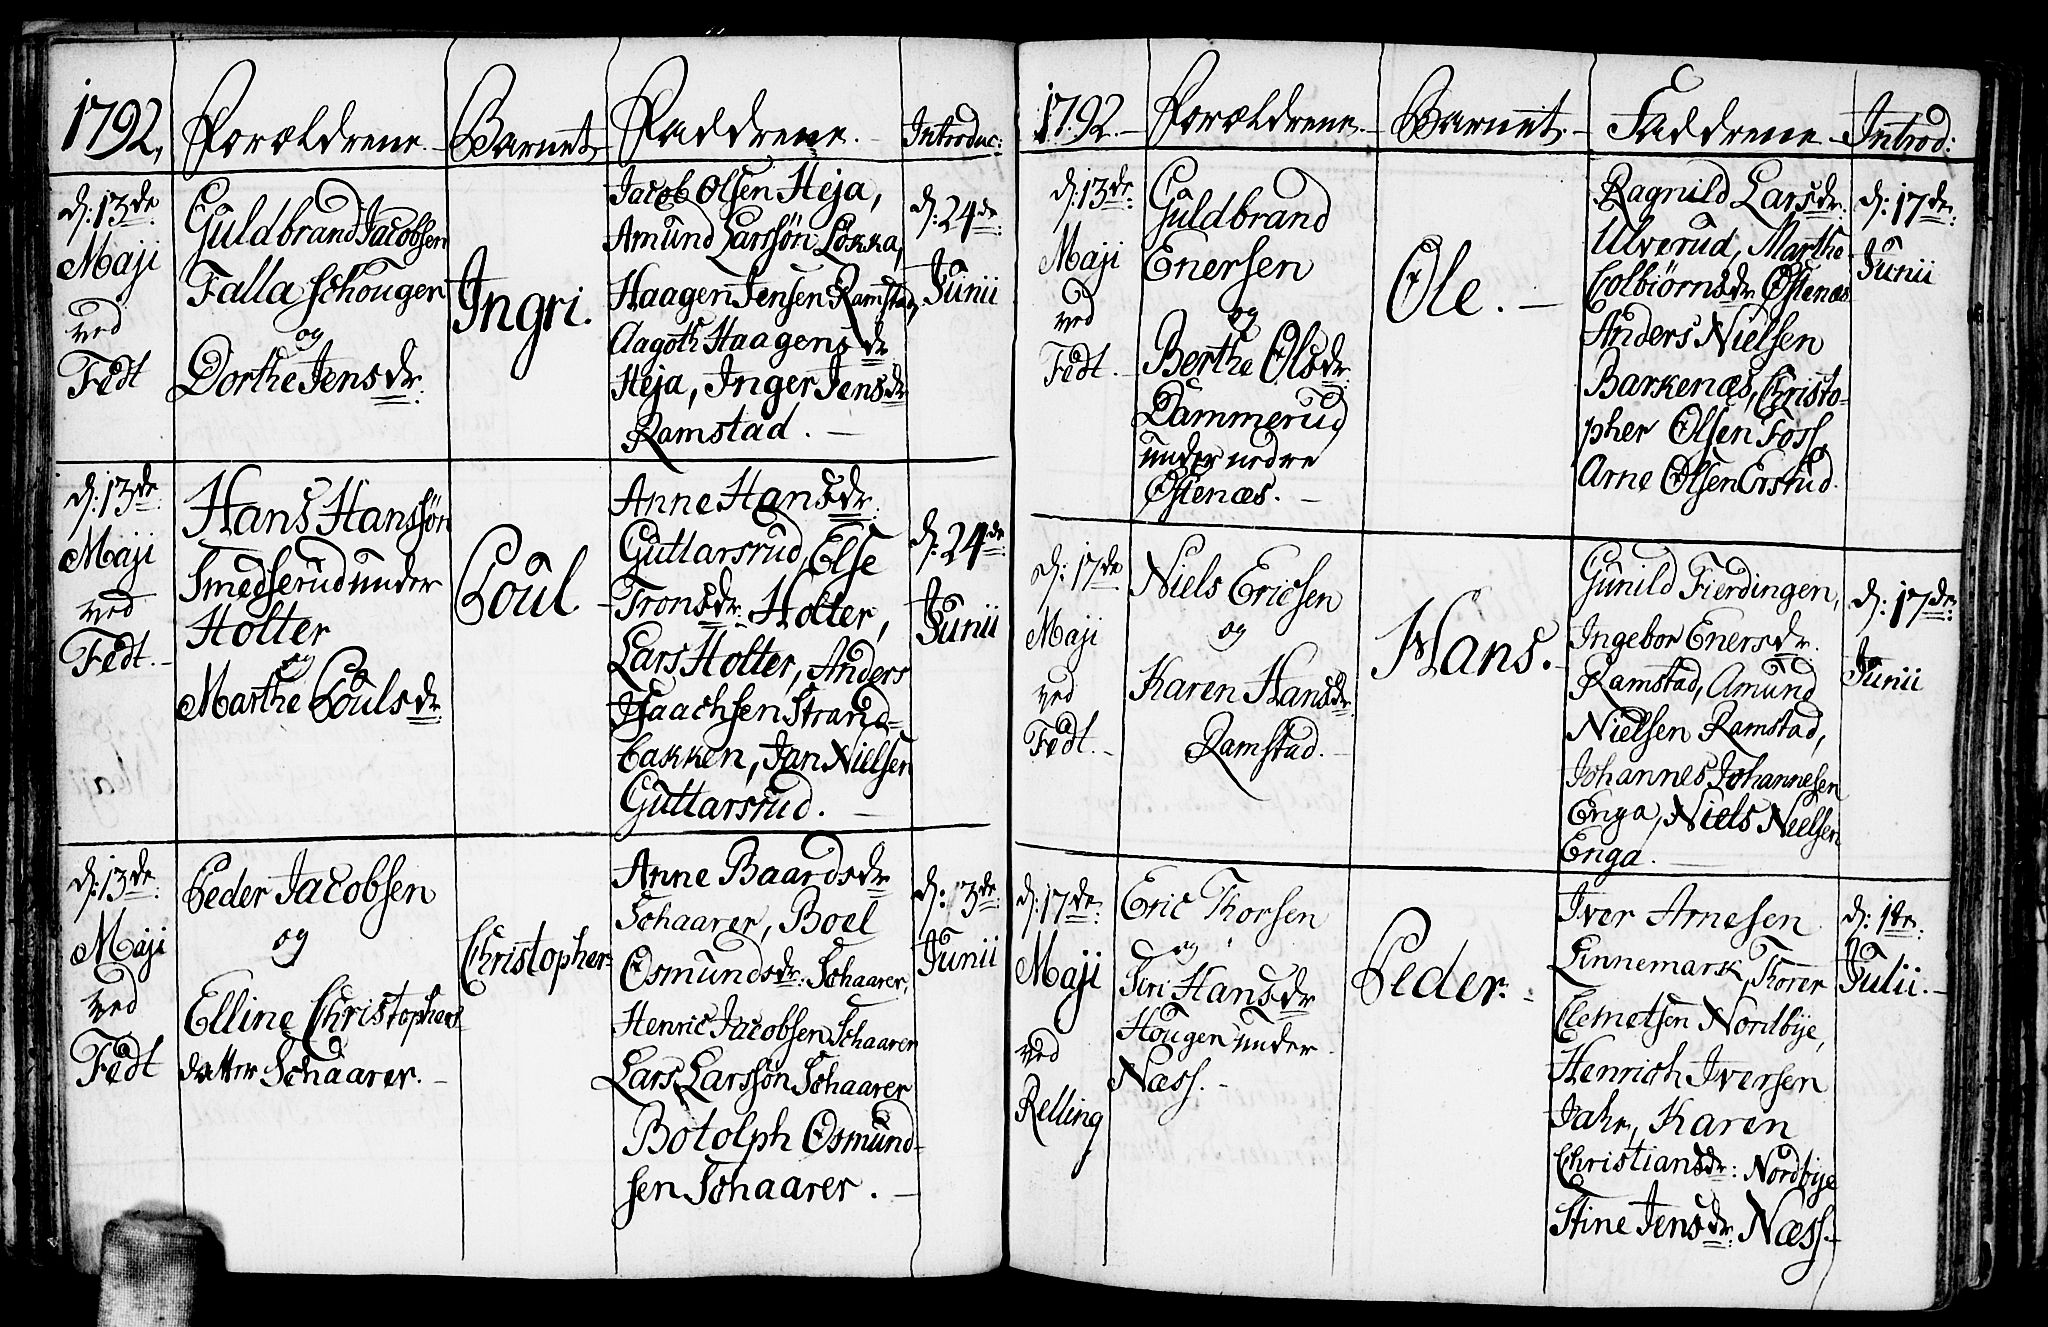 1792, Forældrene. Barnet Faddrene. Introduc:
d: 13de
Maji
ved
Fedt
Guldbrand Jacobsen
Falla schougen
og
Dorthe Jensdr.
Ingri.
Jacob Olsen Heja,
Amund Larssøn Løkka,
Haagen Jensen Ramstad,
Aagoth Haagensdr
Heja, Inger Jensdr
Ramstad. –
d: 24de
Junii
d: 13de
Maji
ved
Fedt. –
Hans Hanssøn
Smedserud under
Holter
og
Marthe Poulsdr
Poul –
Anne Hansdr.
Guttarsrud, Else
Tronsdr. Holter,
Lars Holter, Anders
Isaachsen Strand-
bakken, Jan Nielsen
Guttarsrud. –
d: 24de
Junii
d: 13de
Maji
ved
Fedt
Peder Jacobsen
og
Elline Christophers
datter Schaarer. –
Christopher
Anne Baardsdr
Schaarer, Boel
Osmundsdr: Schaarer,
Henric Jacobsen Schaarer
Lars Larssøn Schaarer
Botolph Osmund-
sen Schaarer. –
d: 13de
Junii
1792. – Forældrene. – Barnet. – Faddrene – Introd:
d: 13de
Maji
ved
Fedt. –
Guldbrand
Enersen
og
Berthe Olsdr.
Dammerud
under nedre
Østenæs. –
Ole. –
Ragnild Larsdr.
Ulverud, Marthe
Colbiørnsdr Østenæs
Anders Nielsen
Barkenæs, Christo-
pher Olsen Foss,
Arne Olsen Erstud.
d: 17de
Junii
d: 17de
Maji
ved
Fedt. –
Niels Ericsen
og
Karen Hansdr.
Ramstad. –
Hans. –
Gunild Fierdingen,
Ingebor Enersdr.
Ramstad, Amund
Nielsen Ramstad,
Johannes Johannesen
Enga, Niels Nielsen
Enga. –
d: 17de
Junii
d: 17de
Maji
ved
Relling
Eric Thorsen
og
Siri Hansdr
Hougen under
Næss. –
Peder. –
Iver Arnesen
Linnemark, Thorer
Clemetsen Nordbÿe,
Henrich Iversen
Jahr, Karen
Christiansdr: Nordbÿe
Stine Jensdr: Næss. –
d: 1te
Julii. –